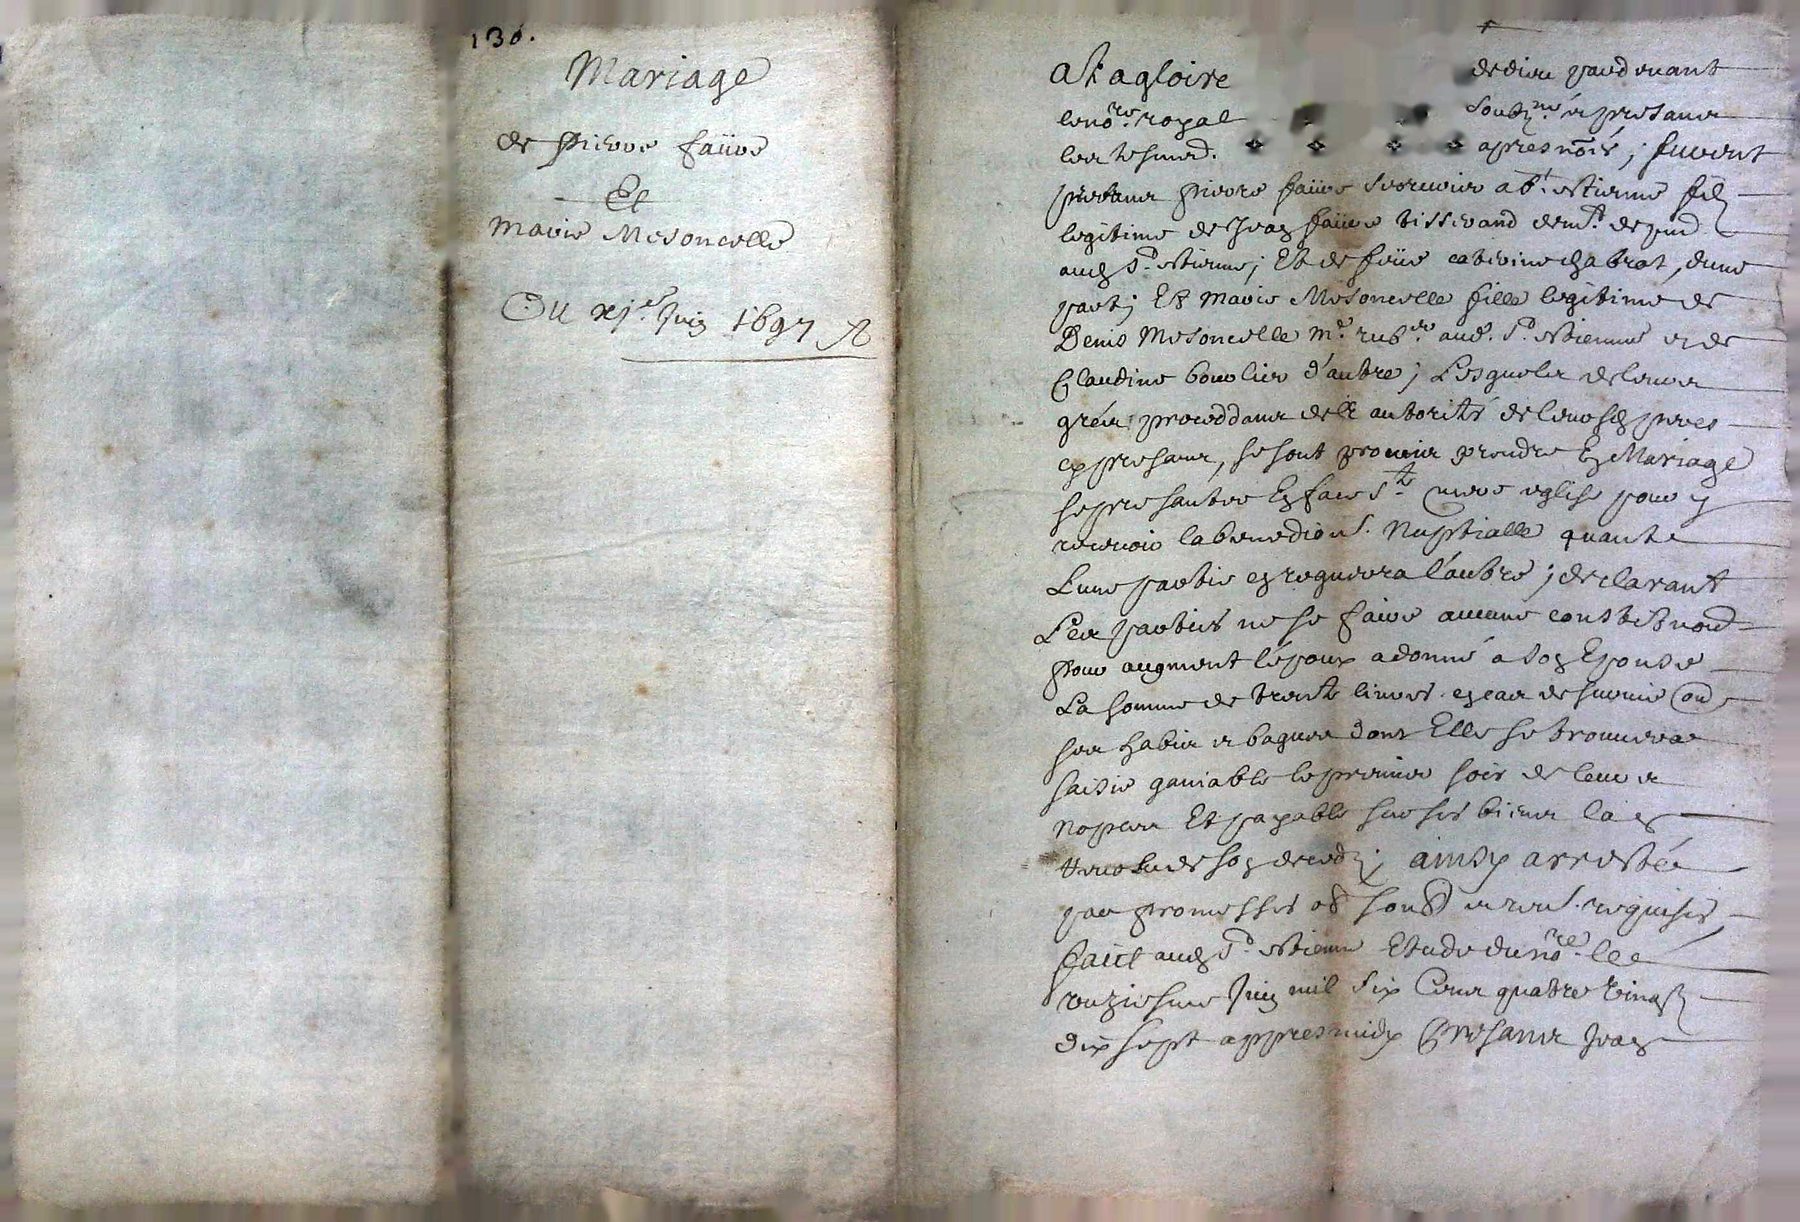 130.
Mariage
de pierre faüre
Et
marie Mesoncelle
Du xj.e Juin 1697
A La gloire de dieu pardevant
le no.re royal soubz.né et presans
les tesmoi. apres només ; furent
presans pierre faüre serrurier a St. estienne filz
legitime de Jean faüre tisserand dem.t de pnt
aud St. estienne ; Et de feüe caterine chabrot, d'une
part ; Et marie Mesoncelle fille legitime de
Denis Mesoncelle m.e rub.er aud. St. estienne et de
Claudine d'autre ; Lesquels de leurs
gréz proceddans de l'autorité de leursd peres
cy presans, se sont promis prendre En Mariage
se presanter En face Ste mere eglise pour y
recevoir la benedion. Nuptialle quant
L'une partie en requerera l'autre ; declarant
Les parties ne se faire aucune constituon
pour augment l'époux a donné a son Epouse
La somme de trente livres en cas de survie
ses habis et bagues dont Elle se trouvera
saisie ganiable le premier soir de leurs
nopces Et payable sur ses biens l'an
revolu de son deced ; ainsy arresté
par promesses requises,
faict aud St. estienne Etude du no.re le
unziesme Juin mil six Cens quatre vingt
dix sept appres midy Presans Jean